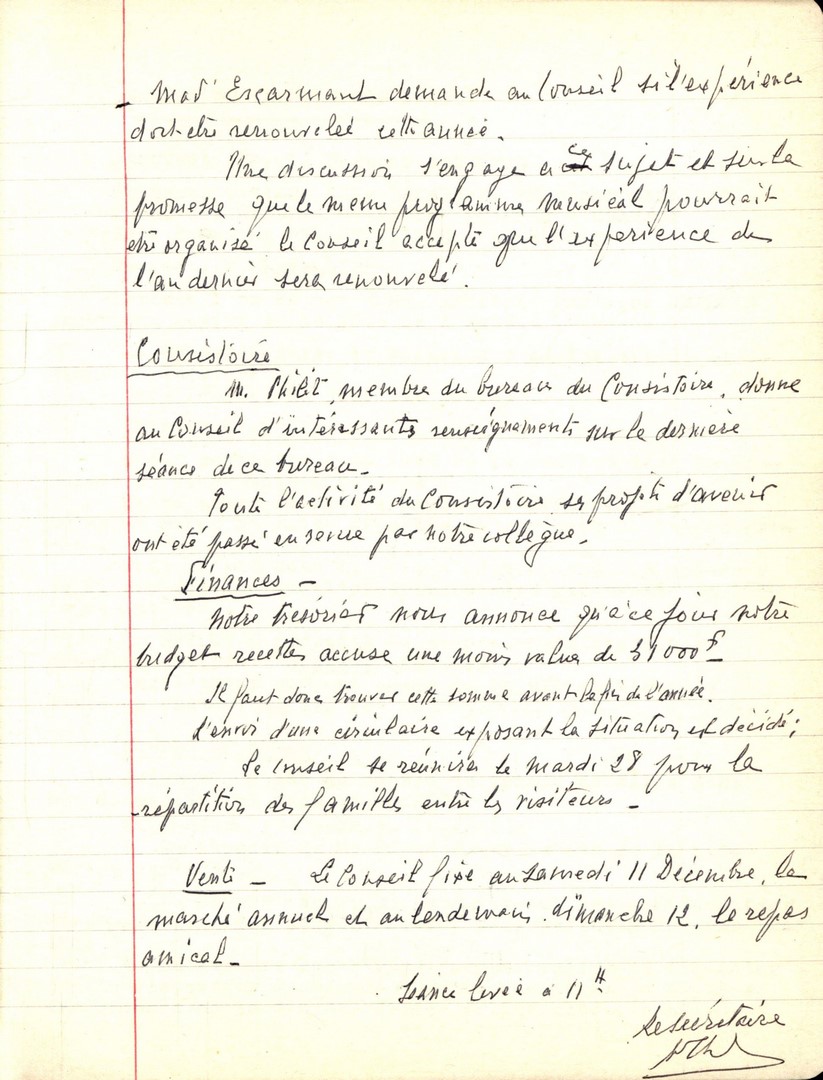 - Mad' Escarmant demande au Conseil si l'expérience
doit etre renouvelée cette année.
Une discussion s'engage à ce sujet et sur la
promesse que le meme programme musical pourrait
etre organisé le Conseil accepte que l'experience de
l'an dernier sera renouvelé.
Consistoire
M. Philit, membre du bureau du Consistoire, donne
au Conseil d'intéressants renseignements sur la dernière
séance de ce bureau.
Toute l'activité du Consistoire, ses projets d'avenir
ont été passé en revue par notre collègue.
Finances -
Notre trésorier nous annonce qu'à ce jour notre
budget recettes accuse une moins value de 000 f
Il faut donc trouver cette somme avant la fin de l'année.
L'envoi d'une circulaire exposant la situation est décidé;
Le Conseil se réunira le mardi 28 pour la
répartition des familles entre les visiteurs -
Vente - Le Conseil fixe au Samedi 11 Décembre, le
marché annuel et au lendemain dimanche 12, le repas
amical -
Séance levée à 11 H
Le Secrétaire